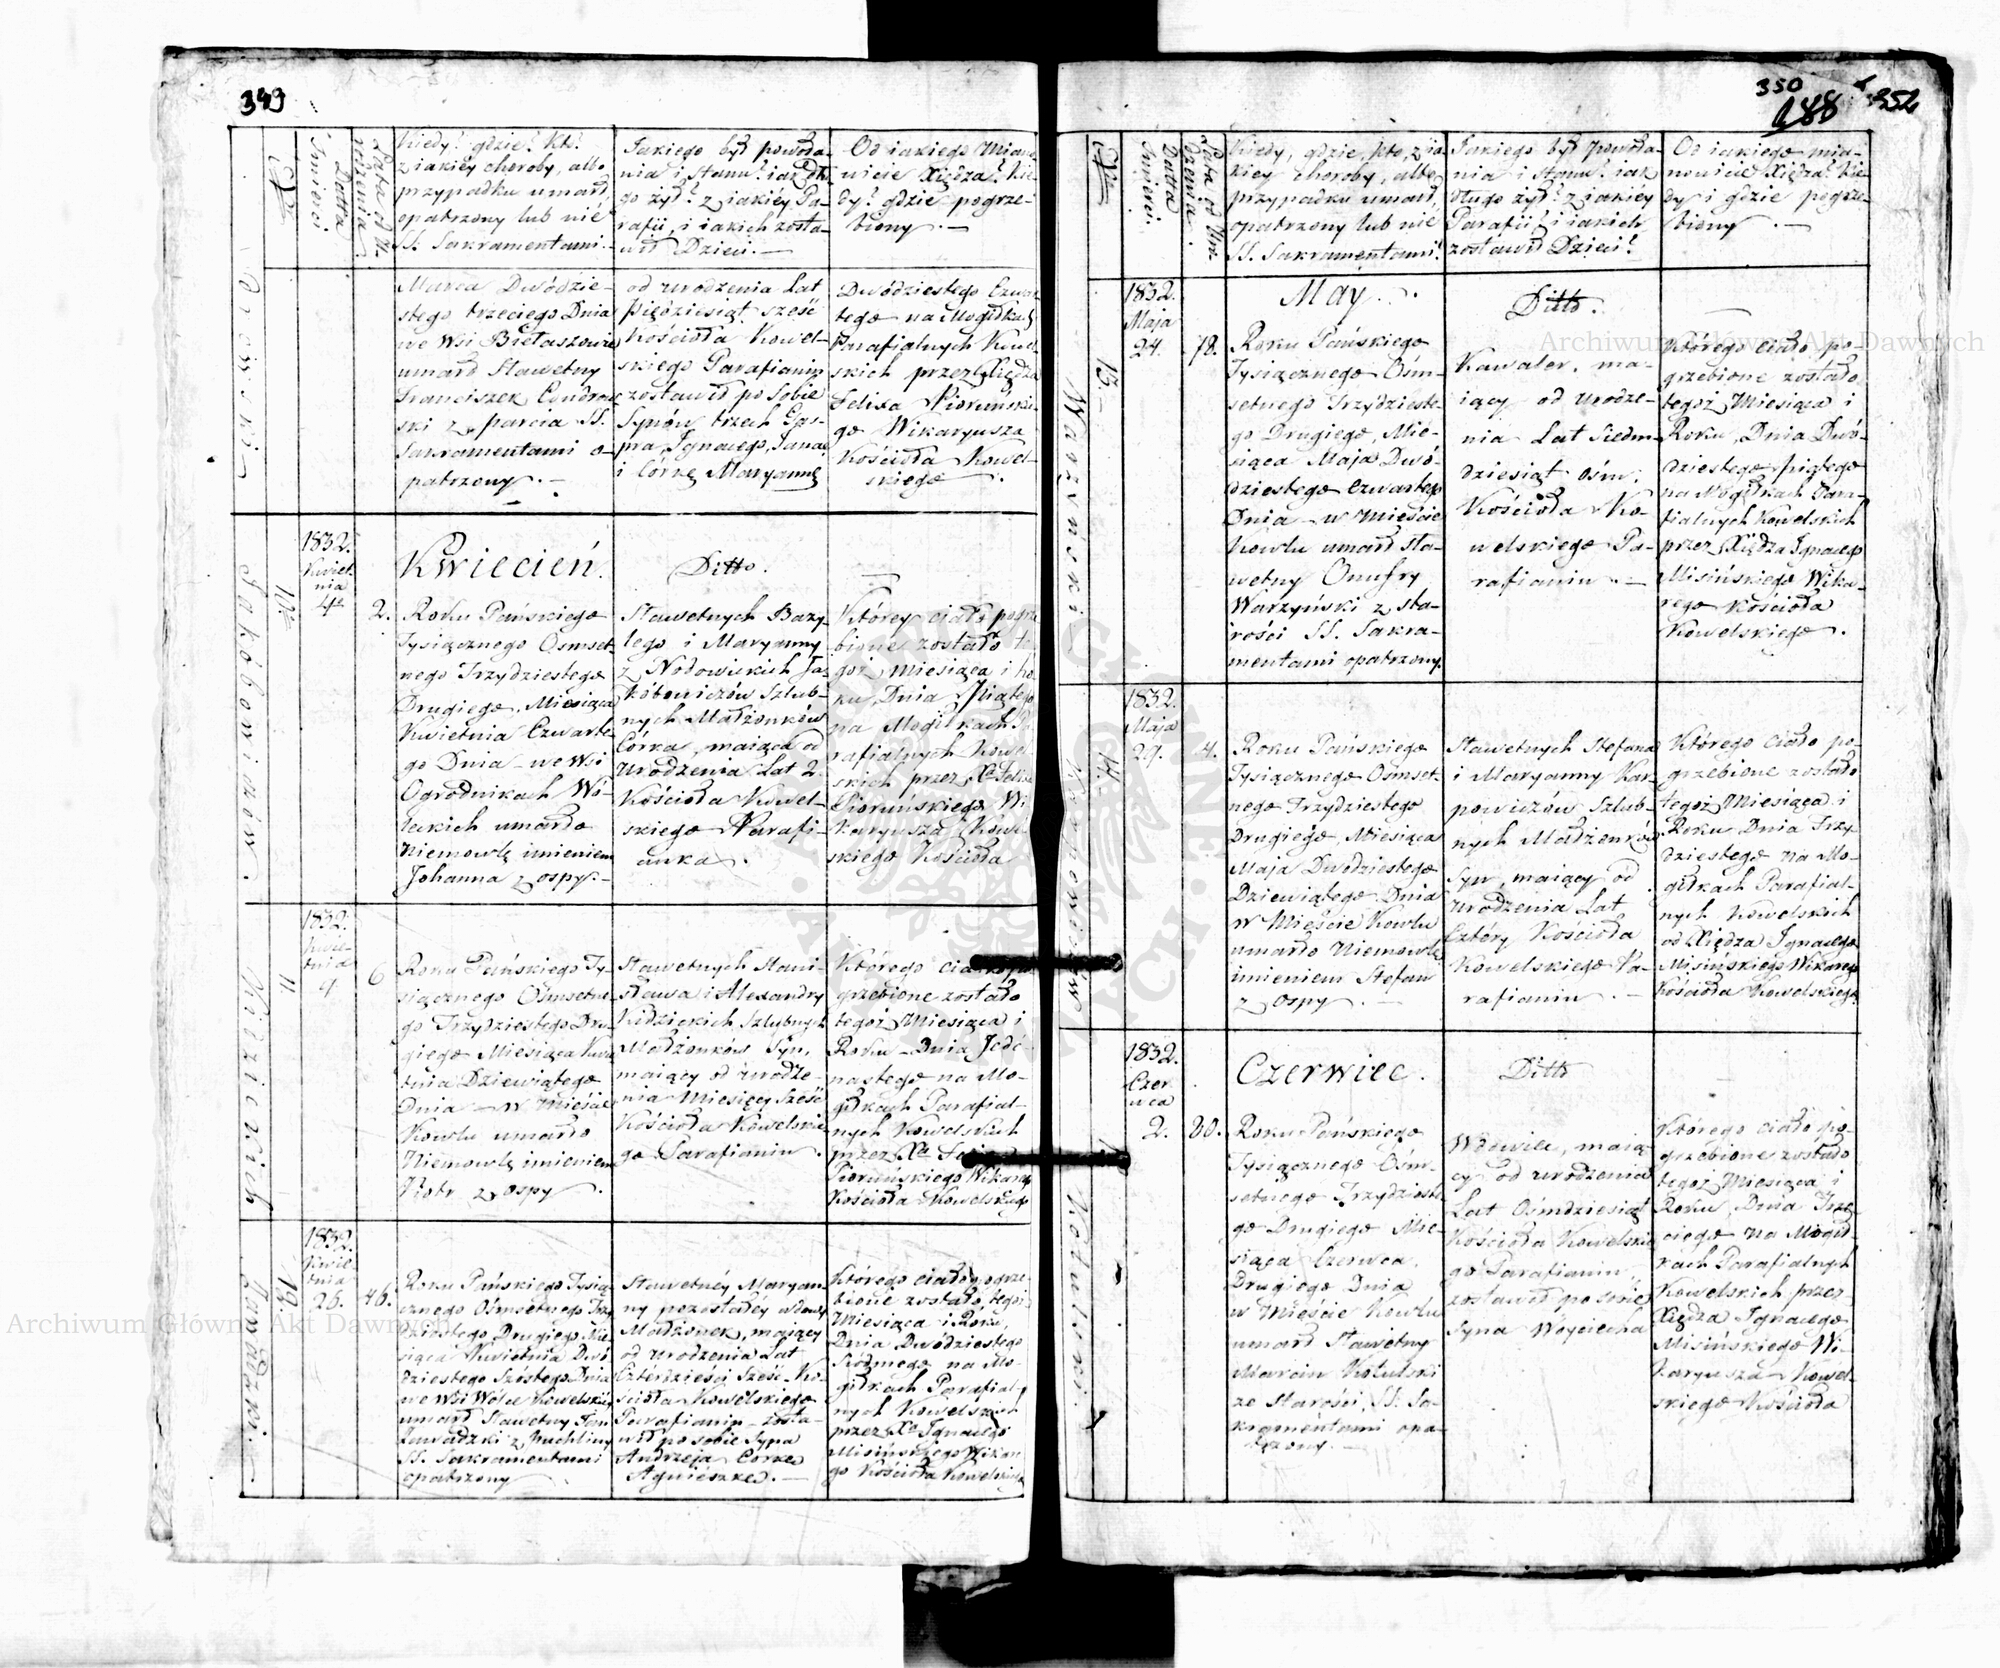 349
No
Datta Śmierci
Lata od U-
rodzenia
Kiedy? gdzie? Kto?
z iakiéy choroby, albo
przypadku umarł,
opatrzony lub nié
SS. Sakramentami. -
Jakiego był powoła-
nia i Stanu? iak dłu-
go żył? z iakiéy Pa-
rafii, i iakich zosta-
wił Dzieci. -
Od iakiego Miano-
wicie Xiędza? Kie-
dy? gdzie pogrze-
biony. -
Marca Dwódzie-
stego trzeciego Dnia
we Wsi Biełaszowie
umarł Sławetny
Franciszek
ski z parcia SS.
Sakramentami o-
patrzony. -
od urodzenia Lat
pięćdziesiąt sześć
Kościoła Kowel-
skiego Parafianin
zostawił po Sobie
Synów trzech Gas-
pra, Ignacego, Jana,
i Córkę Maryannę
Dwódziestego Czwar-
tego na Mogiłkach
Parafialnych Kowel-
skich przez Xiędza
Felixa Pioruńskie-
go Wikaryusza
Kościoła Kowel-
skiego.
Jakóbowiczów.
10.
1832.
Kwiet-
nia
4o
2.
Kwiecień.
Roku Pańskiego
Tysiącznego Osmset-
nego Trzydziestego
Drugiego, Miesiąca
Kwietnia Czwarte-
go Dnia - we Wsi
Ogrodnikach Wo-
leckich umarło
Niemowlę imieniem
Johanna z ospy. -
Ditto.
Sławetnych Bazy-
lego i Maryanny
z Nodowickich Ja-
kóbowiczów Szlub-
nych Małżonków
Córka, maiąca od
Urodzenia Lat 2.
Kościoła Kowel-
skiego Parafi-
anka.
Któréy ciało pogrze-
bione zostało te-
goż Miesiąca i Ro-
ku, Dnia Piątego
na Mogiłkach Pa-
rafialnych Kowel-
skich przez Xa Felixa
Pioruńskiego Wi-
karyusza Kowel-
skiego Kościoła
Kidzickich
11.
1832.
Kwie-
tnia
9
6
Roku Pańskiego Ty-
siącznego Osmsetne-
go Trzydziestego Dru-
giego Miesiąca Kwie-
tnia Dziewiątego
Dnia - w Mieście
Kowlu umarło
Niemowlę imieniem
Piotr z ospy.
Sławetnych Stani-
sława i Alexandry
Kidzickich Szlubnych
Małżonków Syn,
maiący od urodze-
nia Miesięcy Sześć
Kościoła Kowelskie-
go Parafianin.
Którego ciało po-
grzebione zostało
tegoż Miesiąca i
Roku - Dnia Jedé-
nastego na Mo-
giłkach Parafial-
nych Kowelskich
przez Xa Felixa
Pioruńskiego Wikarego
Kościoła Kowelskiego
Zawadzki.
12.
1832.
Kwie-
tnia
26.
46.
Roku Pańskiego Tysią-
cznego Osmsetnego Trzy-
dziestego Drugiego Mie-
siąca Kwietnia Dwó-
dziestego Szóstego Dnia
we Wsi Wólce Kowelskiéy
umarł Sławetny Jan
Zawadzki z puchliny
SS. Sakramentami
opatrzony
Sławetnéy Maryan-
ny pozostałéy wdowy
Małżonek, maiący
od urodzenia Lat
Czterdzieści Sześć. Ko-
ścioła Kowelskiego
Parafianin - zosta-
wił po sobie Syna
Andrzeja Corke
Agnieszke. -
Którego ciało pogrze-
bione zostało, tegoż
Miesiąca i Roku,
Dnia Dwódziestego
Siódmego na Mo-
giłkach Parafial-
nych Kowelskich
przez Xa Ignacego
Misińskiego Wikare-
go Kościoła Kowelskiego
350
188
352
No
Datta
Śmierci.
Lata od Ur-
odzenia.
Kiedy, gdzie, kto, z ia-
kiéy choroby, albo
przypadku umarł,
opatrzony lub nié
SS. Sakramentami?
Jakiego był powoła-
nia i Stanu? iak
długo żył? z iakiéy
Parafii? i iakich
zostawił Dzieci?
Od iakiego mia-
nowicie Xiędza? Kie-
dy i gdzie pogrze-
biony. -
Warzyński
13.
1832.
Maja
24.
78.
May.
Roku Pańskiego
Tysiącznego Ósm-
setnego Trzydzieste-
go Drugiego, Mie-
siąca Maja Dwó-
dziestego Czwartego
Dnia - w Mieście
Kowlu umarł Sła-
wetny Onufry
Warzyński z sta-
rości SS. Sakra-
mentami opatrzony.
Ditto.
Kawaler, ma-
iący od urodze-
nia Lat Siedm-
dziesiąt ośm.
Kościoła Ko-
welskiego Pa-
rafianin. -
Którego ciało po-
grzebione zostało
tegoż Miesiąca i
Roku, Dnia Dwó-
dziestego Piątego
na Mogiłkach Para-
fialnych Kowelskich
przez Xiędza Ignacego
Misińskiego Wika-
rego Kościoła
Kowelskiego.
Karpowiczów
14.
1832.
Maja
29.
4.
Roku Pańskiego
Tysiącznego Osmset-
nego Trzydziestego
Drugiego, Miesiąca
Maja Dwódziestego
Dziewiątego Dnia
w Mieście Kowlu
umarło Niemowlę
imieniem Stefan
z ospy. -
Sławetnych Stefana
i Maryanny Kar-
powiczów Szlub-
nych Małżonków
Syn, maiący od
Urodzenia Lat
Cztéry Kościoła
Kowelskiego Pa-
rafianin. -
Którego ciało po-
grzebione zostało
tegoż Miesiąca i
Roku Dnia Trzy-
dziestego na Mo-
giłkach Parafial-
nych Kowelskich
od Xiędza Ignacego
Misińskiego Wikarego
Kościoła Kowelskiego.
Kotulski.
15.
1832.
Czer-
wca
2.
80.
Czerwiec.
Roku Pańskiego
Tysiącznego Ośm-
setnego Trzydzieste-
go Drugiego Mie-
siąca Czerwca
Drugiego Dnia
w Mieście Kowlu
umarł Sławetny
Marcin Kotulski
ze Starości, SS. Sa-
kramentami opa-
trzony. -
Ditto
Wdowiec, maią-
cy od urodzenia
Lat Ośmdziesiąt
Kościoła Kowelskie-
go Parafianin,
zostawił po sobie
Syna Woyciecha
Którego ciało po-
grzebione zostało
tegoż Miesiąca i
Roku Dnia Trze-
ciego na Mogił-
kach Parafialnych
Kowelskich przez
Xiędza Ignacego
Misińskiego Wi-
karyusza Kowel-
skiego Kościoła
Archiwum Główne Akt Dawnych
Archiwum Główne Akt Dawnych